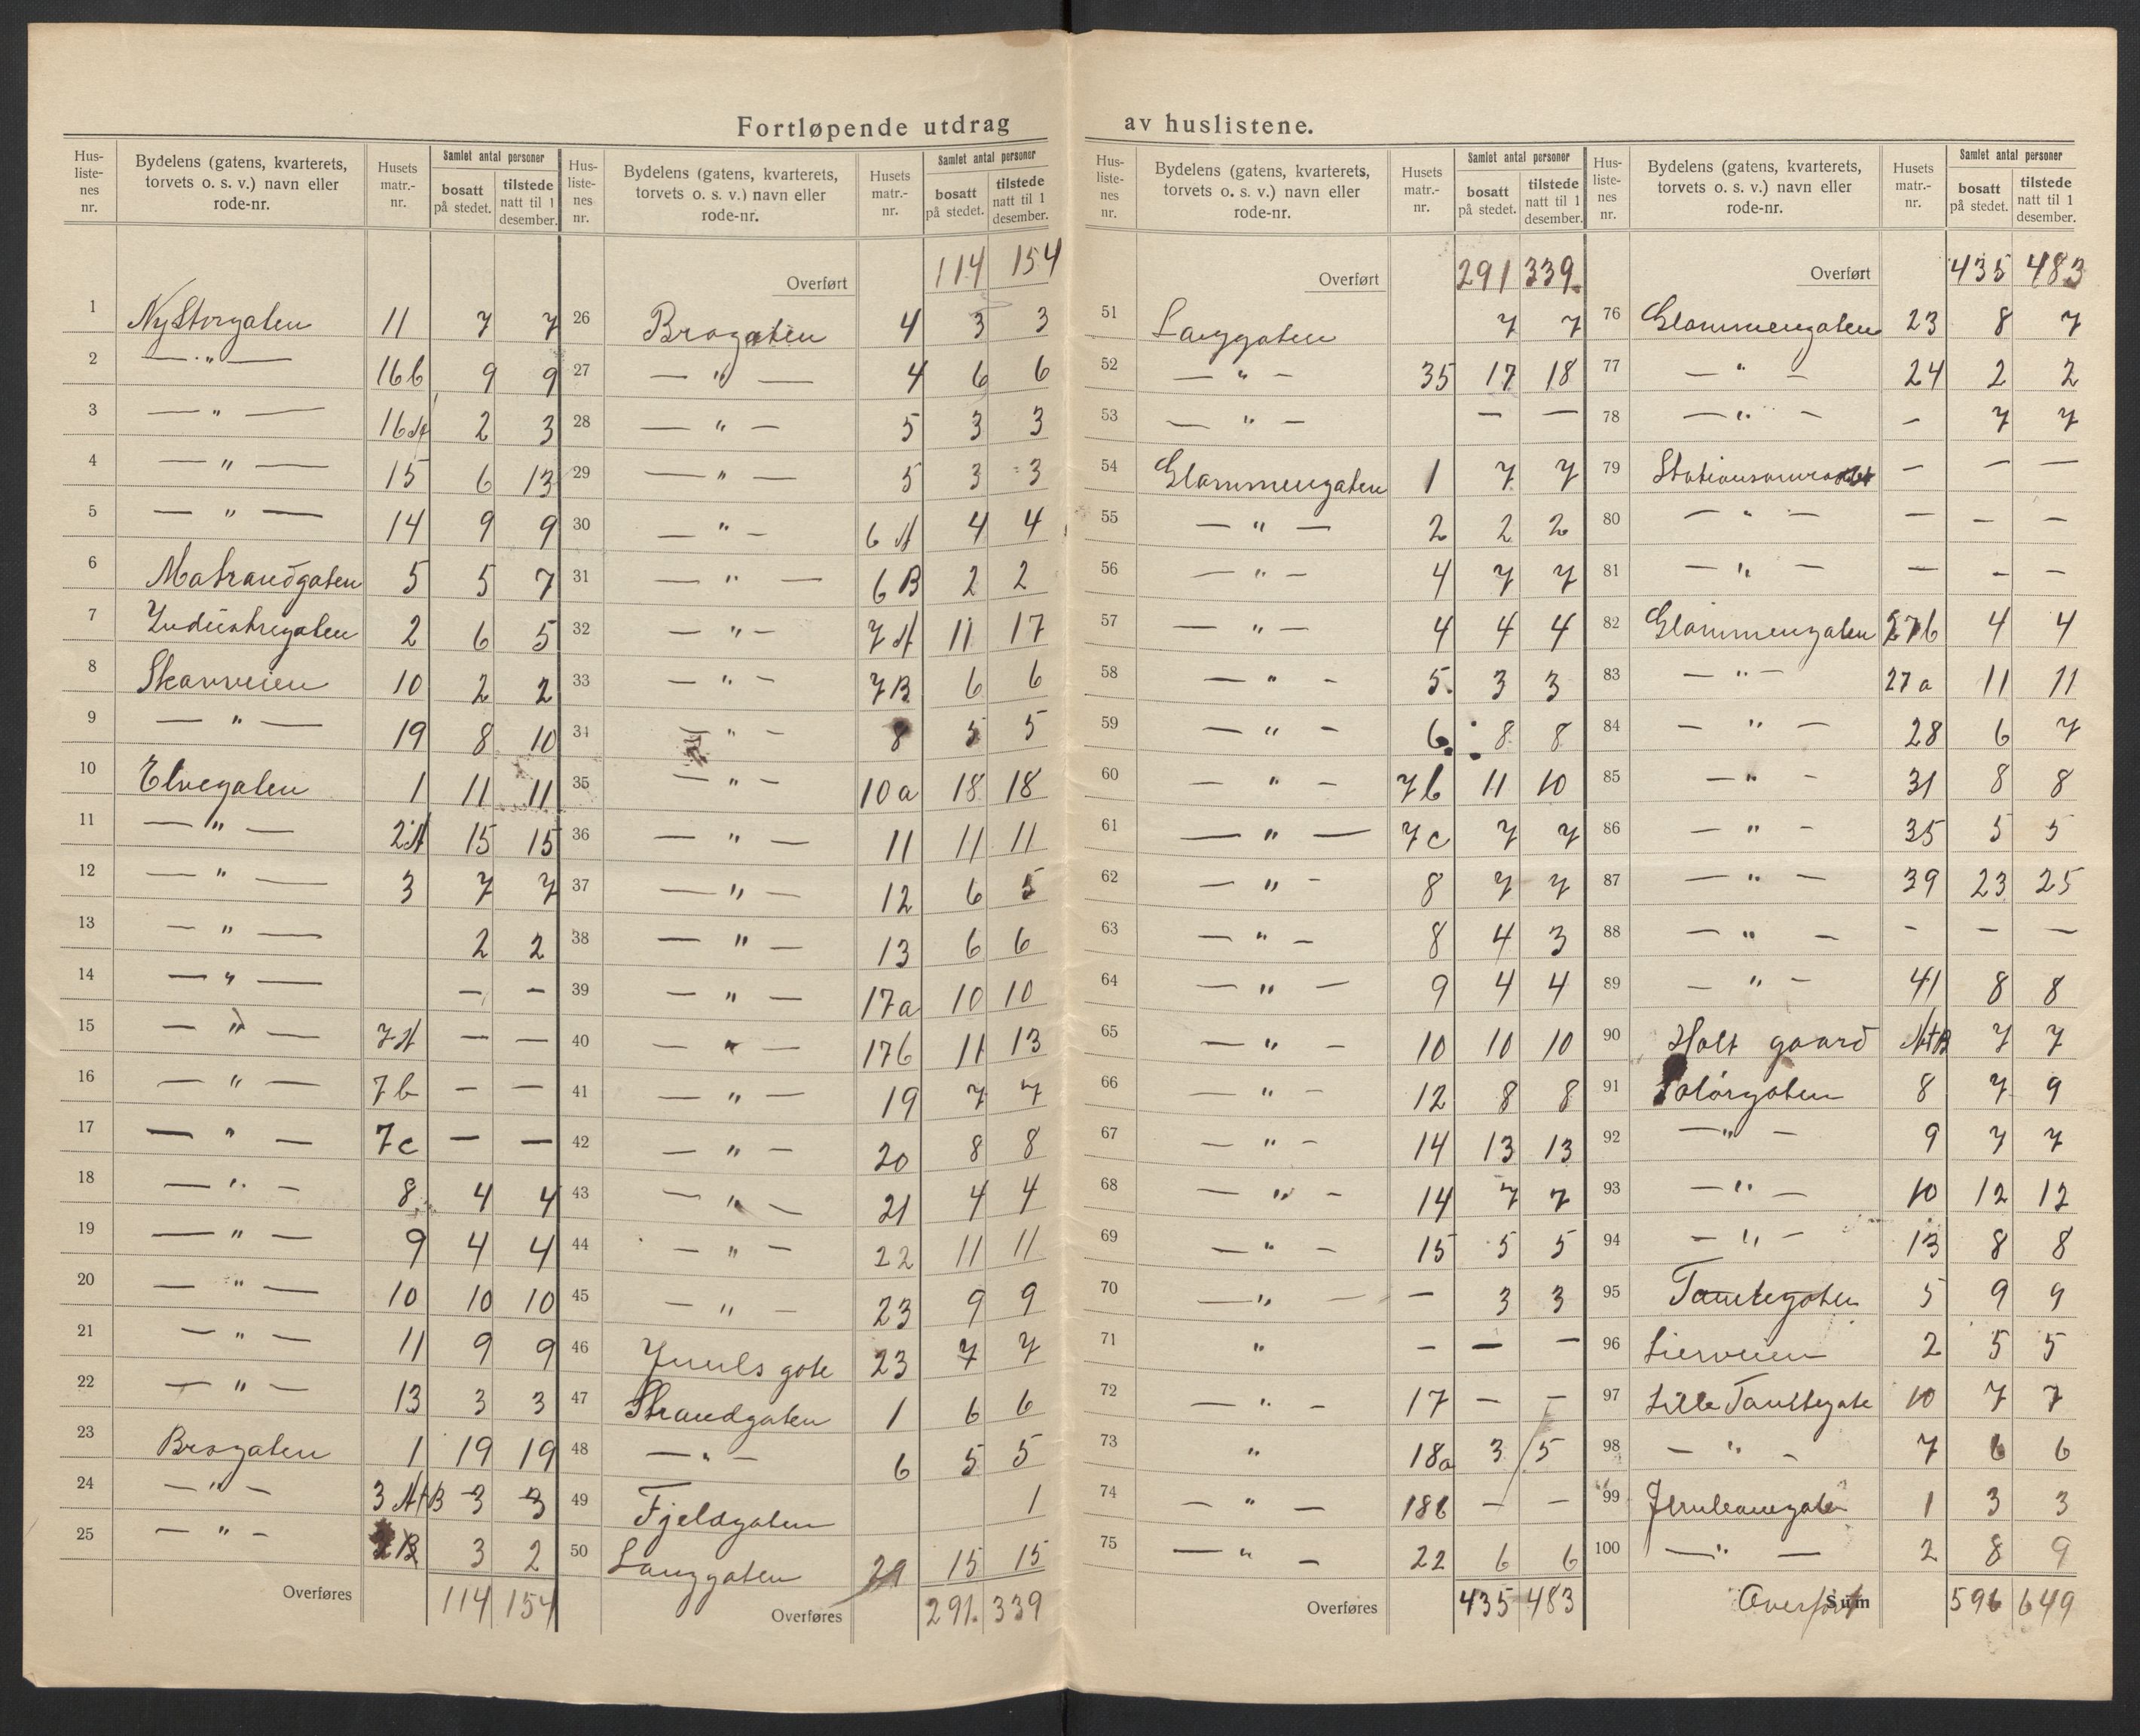 Fortløpende utdrag av huslistene.
Hus-listenes nr. | Bydelens (gatens, kvarterets, torvets o. s. v.) navn eller rode-nr. | Husets matr.-nr. | Samlet antal personer bosatt på stedet. | tilstede natt til 1 desember.
1 Ny Storgaten 11 7 7
2 — " — 16b 9 9
3 — " — 16A 2 3
4 — " — 15 6 13
5 — " — 14 9 9
6 Matrandgaten 5 5 7
7 Industrigaten 2 6 5
8 Skavveien 10 2 2
9 — " — 19 8 10
10 Elvegaten 1 11 11
11 — " — 2A 15 15
12 — " — 3 7 7
13 — " — 2 2
14 — " — — —
15 — " — 7A — —
16 — " — 7b — —
17 — " — 7c — —
18 — " — 8 4 4
19 — " — 9 4 4
20 — " — 10 10 10
21 — " — 11 9 9
22 — " — 13 3 3
23 Brogaten 1 19 19
24 — " — 3 A+B 3 3
25 — " — 3 2
Overføres 114 154
Hus-listenes nr. | Bydelens (gatens, kvarterets, torvets o. s. v.) navn eller rode-nr. | Husets matr.-nr. | Samlet antal personer bosatt på stedet. | tilstede natt til 1 desember.
Overført 114 154
26 Brogaten 4 3 3
27 — " — 4 6 6
28 — " — 5 3 3
29 — " — 5 3 3
30 — " — 6 A 4 4
31 — " — 6 B 2 2
32 — " — 7 A 11 17
33 — " — 7B 6 6
34 — " — 8 5 5
35 — " — 10a 18 18
36 — " — 11 11 11
37 — " — 12 6 5
38 — " — 13 6 6
39 — " — 17a 10 10
40 — " — 17b 11 13
41 — " — 19 7 7
42 — " — 20 8 8
43 — " — 21 4 4
44 — " — 22 11 11
45 — " — 23 9 9
46 Juuls gate 23 7 7
47 Strandgaten 1 6 6
48 — " — 6 5 5
49 Fjeldgaten 1
50 Langgaten 15 15
Overføres 291. 339
Hus-listenes nr. | Bydelens (gatens, kvarterets, torvets o. s. v.) navn eller rode-nr. | Husets matr.-nr. | Samlet antal personer bosatt på stedet. | tilstede natt til 1 desember.
Overført 291 339.
51 Langgaten 7 7
52 — " — 35 17 18
53 — " — — —
54 Glommengaten 1 7 7
55 — " — 2 2 2
56 — " — 4 7 7
57 — " — 4 4 4
58 — " — 5. 3 3
59 — " — 6. 8 8
60 — " — 7b 11 10
61 — " — 7c 7 7
62 — " — 8 7 7
63 — " — 8 4 3
64 — " — 9 4 4
65 — " — 10 10 10
66 — " — 12 8 8
67 — " — 14 13 13
68 — " — 14 7 7
69 — " — 15 5 5
70 — " — — 3 3
71 " — — —
72 — " — 17 — —
73 " 18a 3 5
74 — " — 18b — —
75 — " — 22 6 6
Overføres 435 483
Hus-listenes nr. | Bydelens (gatens, kvarterets, torvets o. s. v.) navn eller rode-nr. | Husets matr.-nr. | Samlet antal personer bosatt på stedet. | tilstede natt til 1 desember.
Overført 435 483
76 Glommengaten 23 8 7
77 — " — 24 2 2
78 — " — - 7 7
79 — — —
80 — " — — — —
81 — " — — — —
82 Glommengaten 27b 4 4
83 — " — 27a 11 11
84 — " — 28 6 7
85 — " — 31 8 8
86 — " — 35 5 5
87 — " — 39 23 25
88 — " — - — —
89 — " — 41 8 8
90 Holt gaard A+B 7 7
91 Solørgaten 8 7 9
92 — " — 9 7 7
93 — " — 10 12 12
94 — " — 13 8 8
95 Tomtegaten 5 9 9
96 Lierveien 2 5 5
97 Lille Tomtegate 10 7 7
98 — " — 7 6 6
99 1 3 3
100 — " — 2 8 9
Overført Sum 596 649